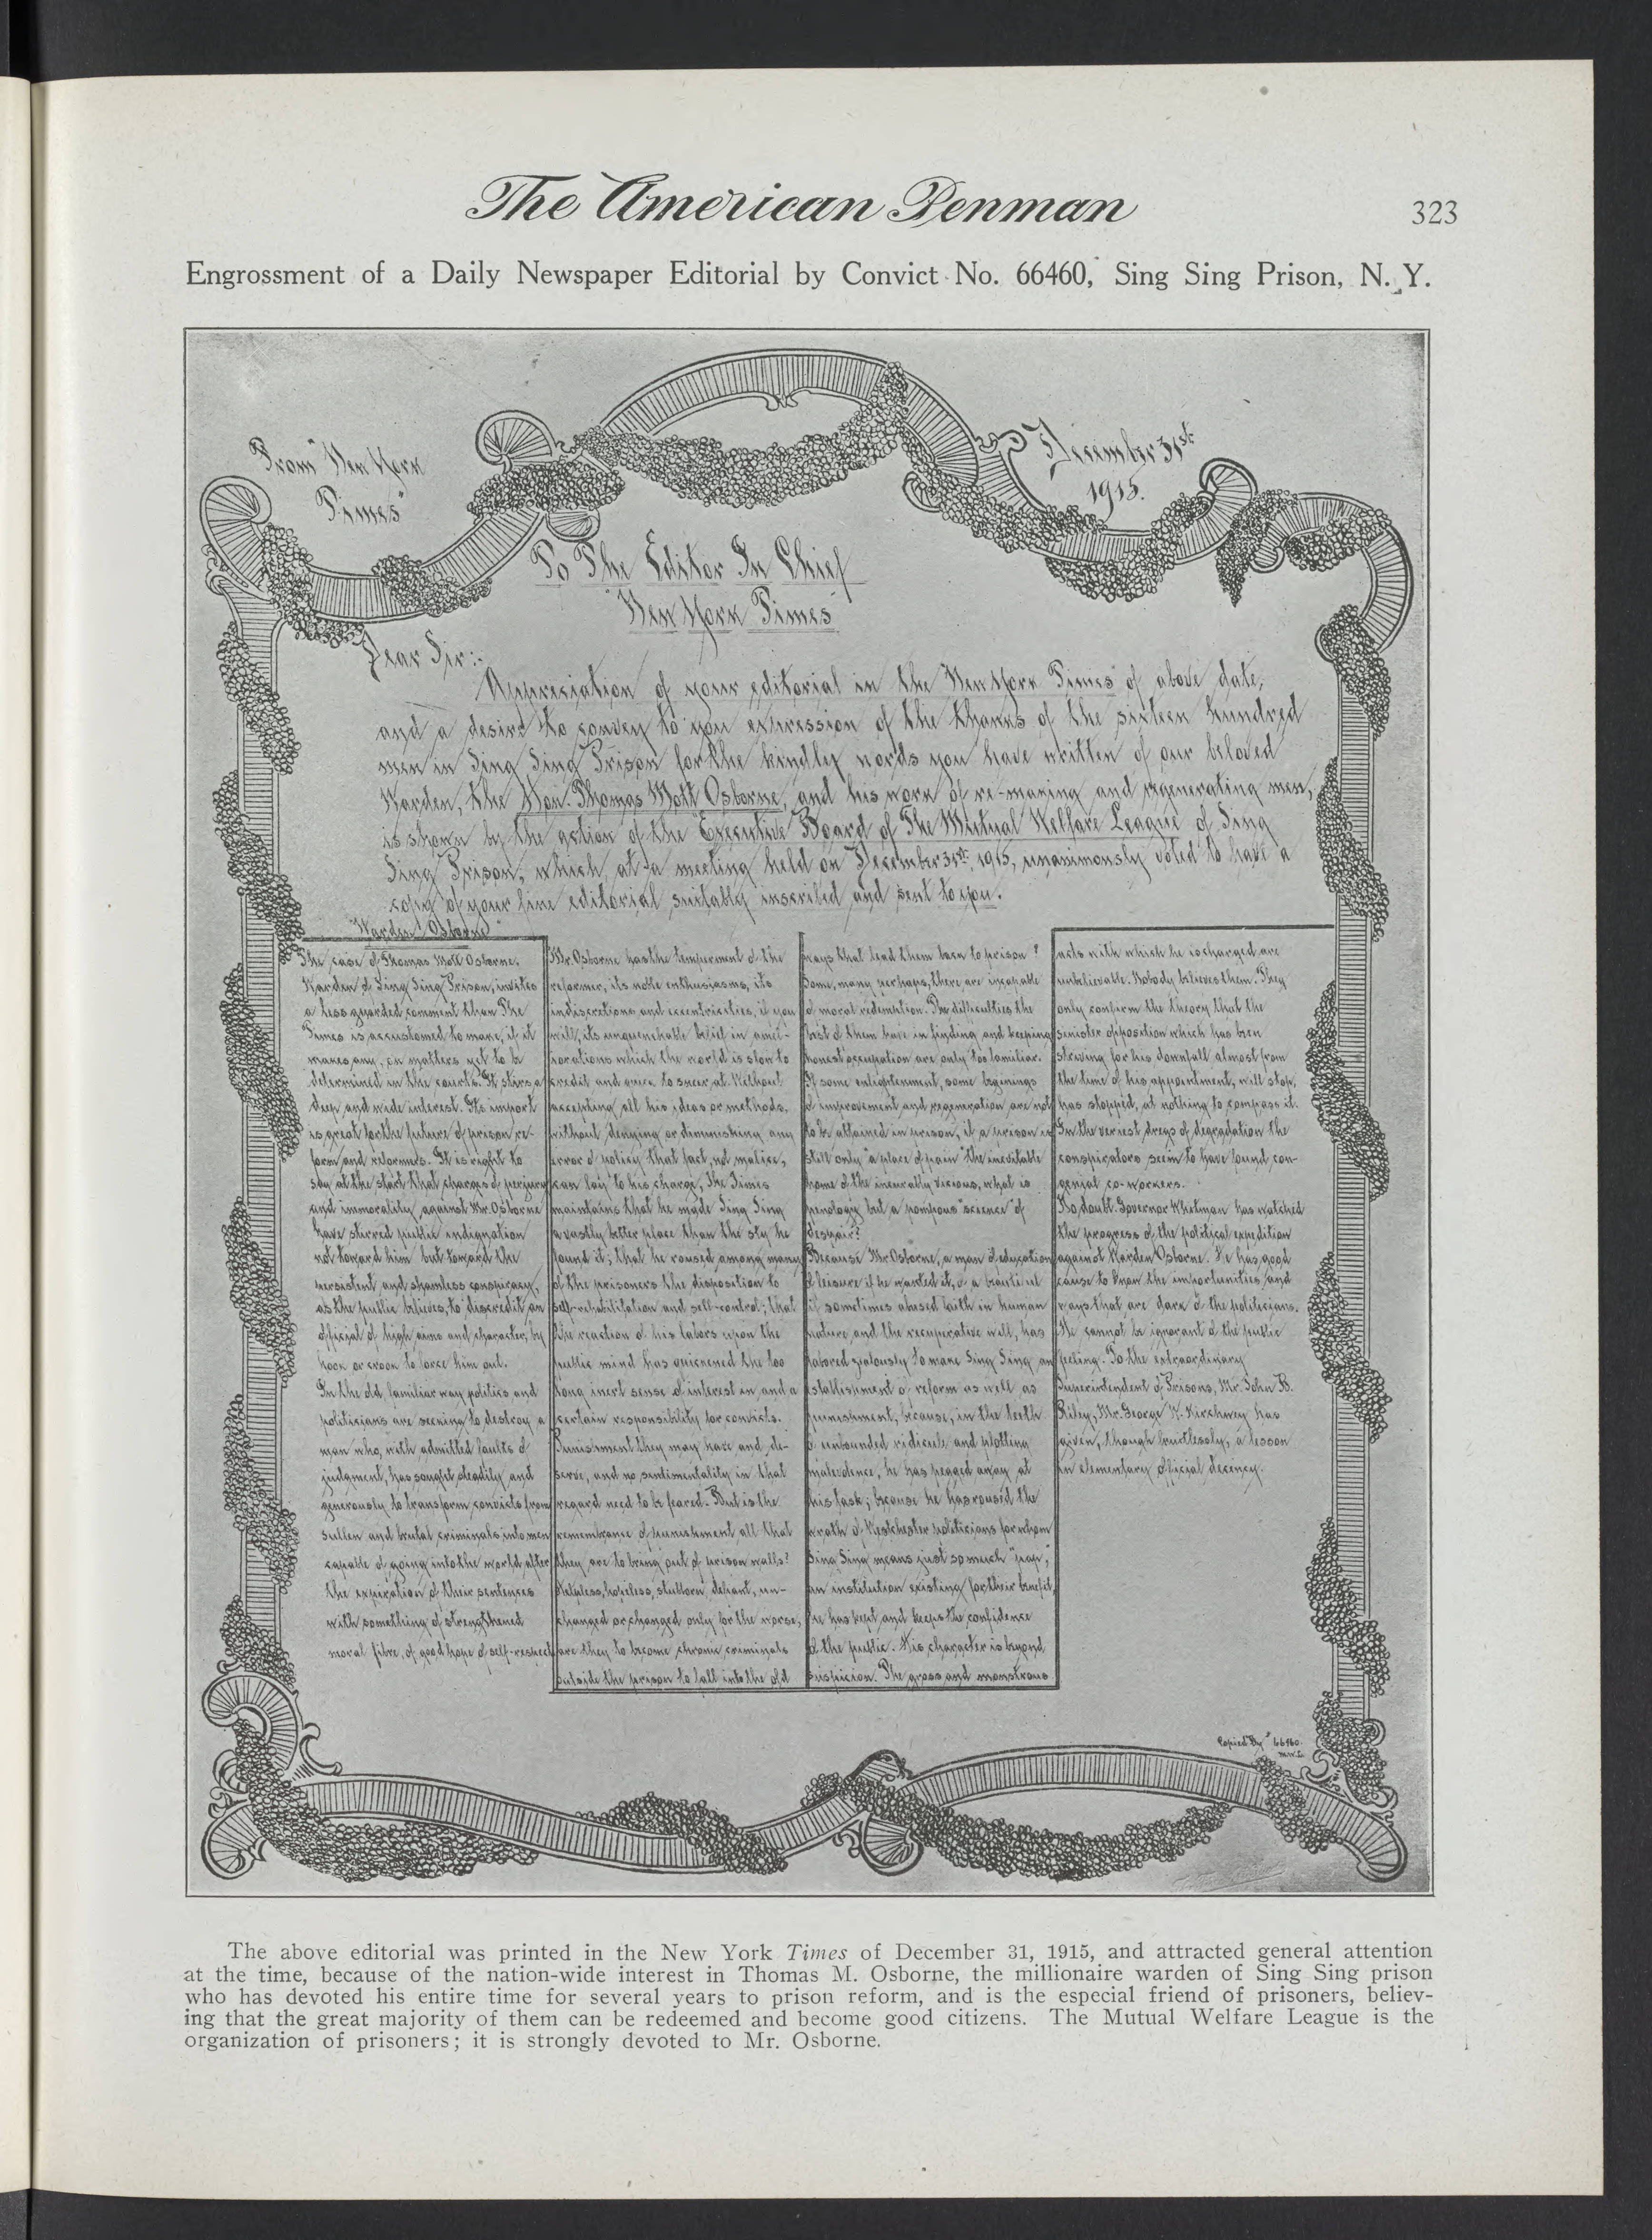 The American Penman
323
Engrossment of a Daily Newspaper Editorial by Convict No. 66460, Sing Sing Prison, N. Y.
From "New York
Times"
December 31st
1915.
To The Editor In Chief
"New York Times"
Dear Sir:-
Appreciation of your editorial in the "New York Times" of above date,
and a desire to convey to you expression of the thanks of the sixteen hundred
men in Sing Sing Prison for the kindly words you have written of our beloved
Warden, the Hon. Thomas Mott Osborne, and his work of re-making and regenerating men,
is shown by the action of the Executive Board of The Mutual Welfare League of Sing
Sing Prison, which, at a meeting held on December 31st, 1915, unanimously voted to have a
copy of your fine editorial suitably inscribed and sent to you.
"Warden Osborne"
The case of Thomas Mott Osborne,
Warden of Sing Sing Prison, invites
a less guarded comment than The
Times is accustomed to make, if it
makes any, on matters yet to be
determined in the courts. It stirs a
deep and wide interest. Its import
is great for the future of prison re-
form and reformers. It is right to
say at the start that charges of perjury
and immorality against Mr. Osborne
have stirred public indignation
not toward him but toward the
persistent and shameless conspiracy,
as the public believes, to discredit an
official of high aims and character, by
hook or crook to force him out.
In the old, familiar way politics and
politicians are seeking to destroy a
man who, with admitted faults of
judgment, has sought steadily and
generously to transform convicts from
sullen and brutal criminals into men
capable of going into the world after
the expiration of their sentences
with something of strengthened
moral fibre, of good hope of self-respect
Mr. Osborne has the temperment of the
reformer, its noble enthusiasms, its
indiscretions and eccentricities, if you
will, its unquenchable belief in amel-
iorations which the world is slow to
credit and quick to sneer at. Without
accepting all his ideas or methods,
without denying or diminishing any
error of policy that fact, not malice,
can lay to his charge, The Times
maintains that he made Sing Sing
a vastly better place than the sty he
found it; that he roused among many
of the prisoners the disposition to
self-rehabilitation and self-control; that
the reaction of his labors upon the
public mind has quickened the too
long inert sense of interest in and a
certain responsibility for convicts.
Punishment they may have and de-
serve, and no sentimentality in that
regard need to be feared. But is the
remembrance of punishment all that
they are to bring out of prison walls?
Helpless, hopeless, stubborn, defiant, un-
changed or changed only for the worse,
are they to become chronic criminals
outside the prison to fall into the old
ways that lead them back to prison?
Some, many perhaps, there are incapable
of moral redemption. The difficulties the
best of them have in finding and keeping
honest occupation are only too familiar.
If some enlightenment, some beginings
of improvement and regeneration are not
to be attained in prison, if a prison is
still only "a place of pain" the inevitable
home of the incurably vicious, what is
penology but a pompous "science" of
despair?
Because Mr. Osborne, a man of education
of leisure if he wanted it, of a beautiful
if sometimes abused faith in human
nature and the recuperative will, has
labored zealously to make Sing Sing an
establishment of reform as well as
punishment, because, in the teeth
of unbounded ridicule and plotting
malevolence, he has pegged away at
his task; because he has rousd the
wrath of Westchester politicians for whom
Sing Sing means just so much "pap,"
an institution existing for their benefit,
he has kept and keeps the confidence
of the public. His character is beyond
suspicion. The gross and monstrous
acts with which he is charged are
unbelievable. Nobody believes them. They
only confirm the theory that the
sinister opposition which has been
striving for his downfall almost from
the time of his appointment, will stop,
has stopped, at nothing to compass it.
In the veriest dregs of degradation the
conspirators seem to have found con-
genial co-workers.
No doubt Governor Whitman has watched
the progress of the political expedition
against Warden Osborne. He has good
cause to know the importunities and
ways that are dark of the politicians.
He cannot be ignorant of the public
feeling. To the extraordinary
Superintendent of Prisons, Mr. John B.
Riley, Mr. George W. Kirchwey has
given, though fruitlessly, a lesson
in elementary official decency.
Copied By # 66460.
M.W.L.
The above editorial was printed in the New York Times of December 31, 1915, and attracted general attention
at the time, because of the nation-wide interest in Thomas M. Osborne, the millionaire warden of Sing Sing prison
who has devoted his entire time for several years to prison reform, and is the especial friend of prisoners, believ-
ing that the great majority of them can be redeemed and become good citizens. The Mutual Welfare League is the
organization of prisoners; it is strongly devoted to Mr. Osborne.